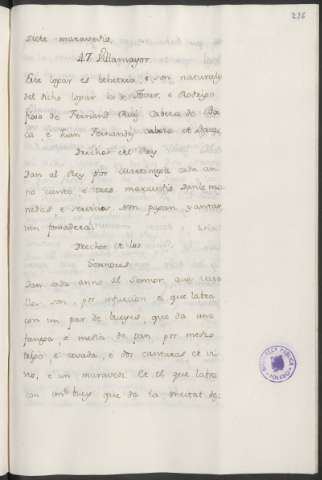 236
siete maravedis.
47. Villamayor.
Este logar es behetria, e son naturales
del dicho logar los de Tovar, e Rodrigo
fijos de Fernand Ruiz Cabeza de Ba
ca e Juan Fernandez cabeza de Baca
Derechos del Rey
Dan al Rey por martiniega cada an
no ciento e tres maravedis danle mo
nedas e servicios non pagan yantar
nin fonsadera.
Derechos de los
Sennores
Dan cada anno al Sennor, que cada
por infurcion el que labra
con un par de bueyes, que da una
fanega, e media de pan, por medio
trigo e cevada, e dos cantaras de vi
no, e un maravedi. Et el que labra
con un buey que da la meitat de